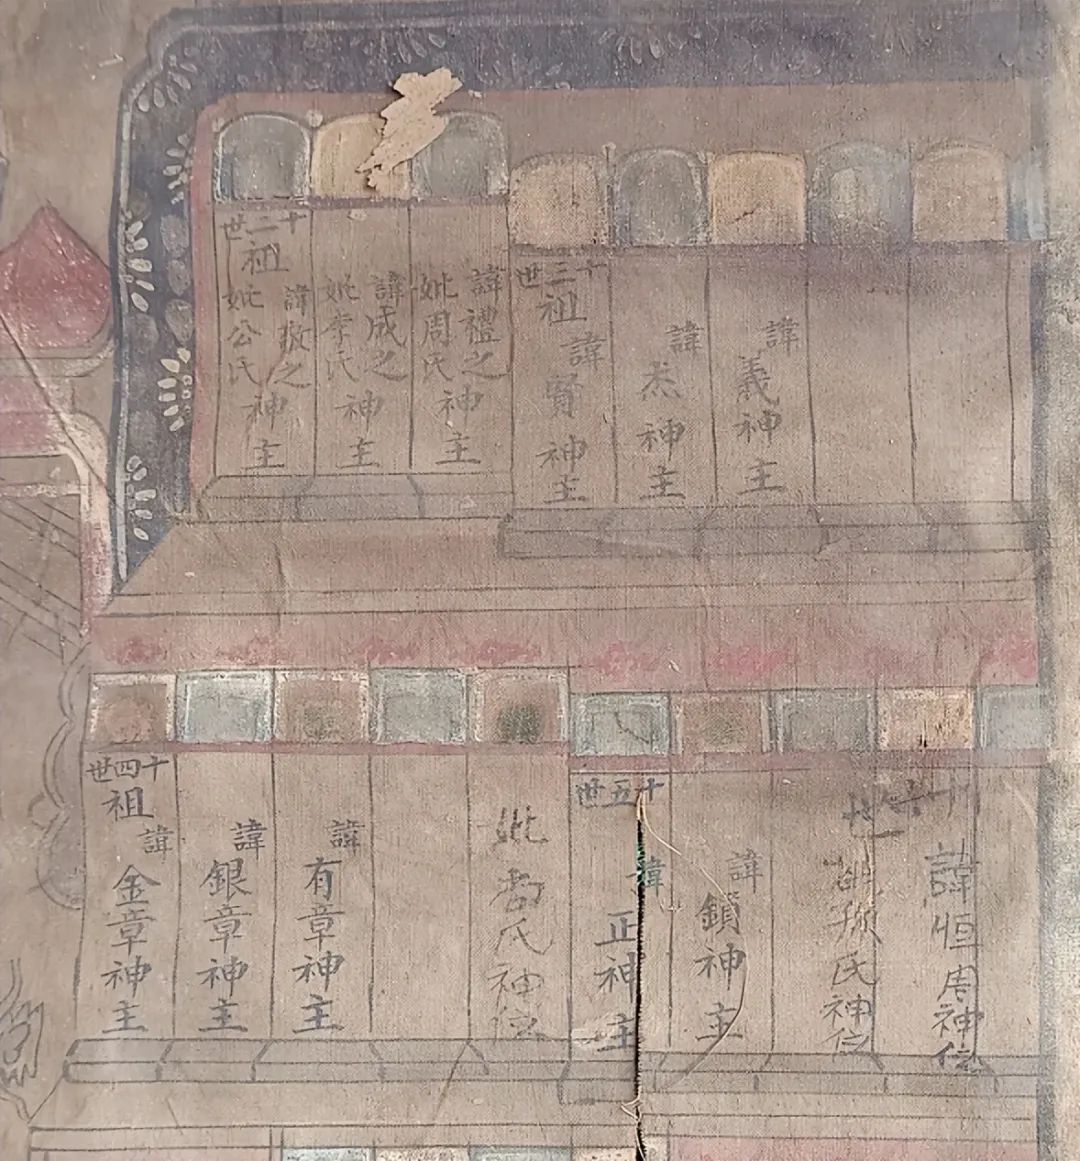 十二世
祖
諱敬之
妣公氏
神主
諱成之
妣李氏
神主
諱禮之
妣周氏
神主
十三世
祖
諱賢神主
諱杰神主
諱義神主
十四世
祖
諱金章神主
諱銀章神主
諱有章神主
妣 氏神位
十五世
諱正神主
諱鎖神主
孫氏神位
諱恒周神位